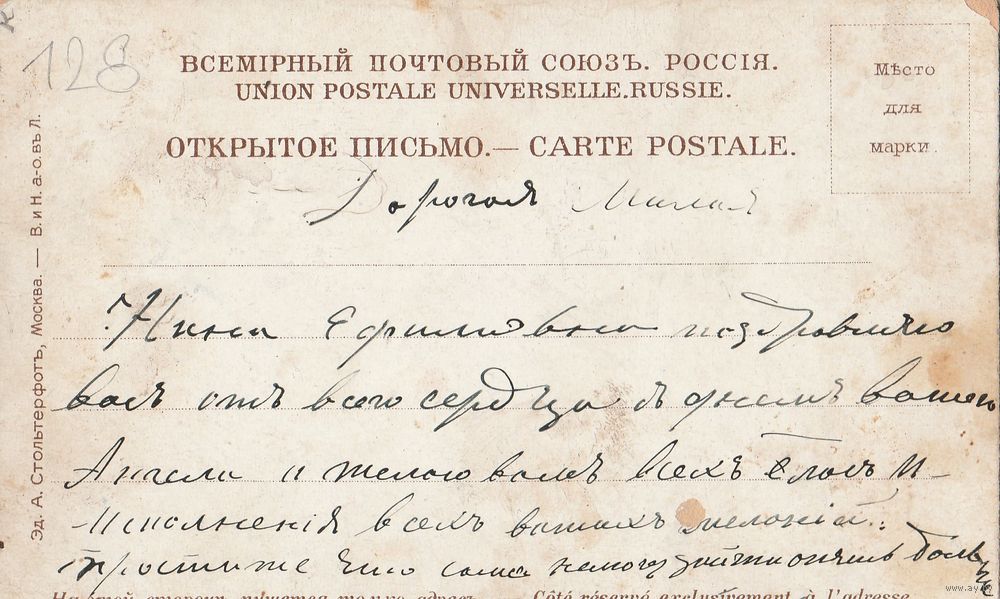 128
ВСЕМІРНЫЙ ПОЧТОВЫЙ СОЮЗЪ. РОССІЯ.
UNION POSTALE UNIVERSELLE.RUSSIE.
ОТКРЫТОЕ ПИСЬМО.— CARTE POSTALE.
Мѣсто
для
марки.
Дорогая Милая
Нина Ефимовна поздравляю
васъ отъ всего сердца съ днемъ вашего
Ангела и желаю вамъ всехъ благъ и
исполненія всехъ вашихъ желаній.
простите что сама немогу зайти очень
На этой сторонѣ пишется только адресъ. Côté réservé exclusivement à l'adresse.
Эд. А. Стольтерфотъ, Москва. — В. и Н. а-о-въ Л.
www.ay.by